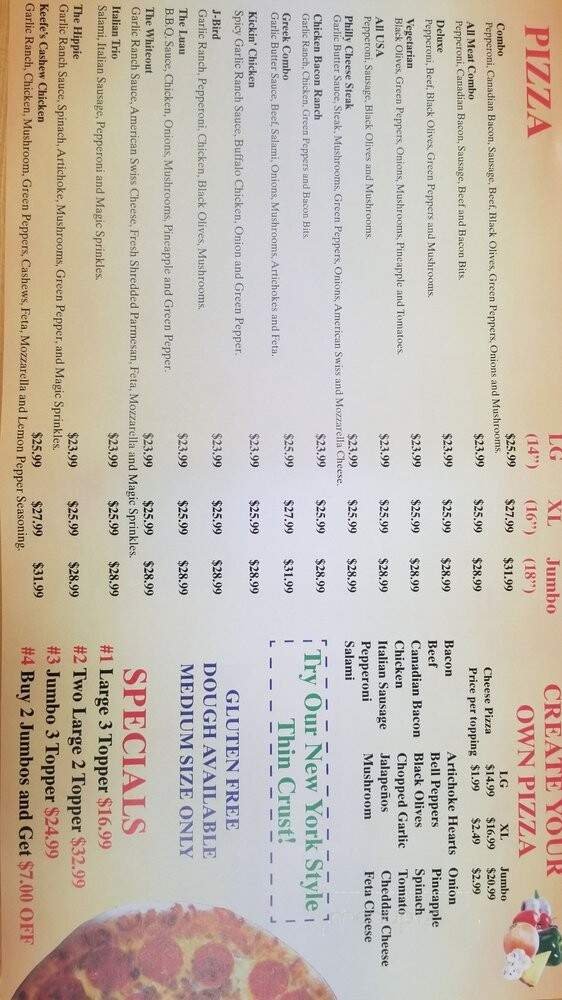 PIZZA
LG XL Jumbo
(14") (16") (18")
Combo $25.99 $27.99 $31.99
Pepperoni, Canadian Bacon, Sausage, Beef, Black Olives, Green Peppers, Onions and Mushrooms.
All Meat Combo $23.99 $25.99 $28.99
Pepperoni, Canadian Bacon, Sausage, Beef and Bacon Bits.
Deluxe $23.99 $25.99 $28.99
Pepperoni, Beef, Black Olives, Green Peppers and Mushrooms.
Vegetarian $23.99 $25.99 $28.99
Black Olives, Green Peppers, Onions, Mushrooms, Pineapple and Tomatoes.
All USA $23.99 $25.99 $28.99
Pepperoni, Sausage, Black Olives and Mushrooms.
Philly Cheese Steak $23.99 $25.99 $28.99
Garlic Butter Sauce, Steak, Mushrooms, Green Peppers, Onions, American Swiss and Mozzarella Cheese.
Chicken Bacon Ranch $23.99 $25.99 $28.99
Garlic Ranch, Chicken, Green Peppers and Bacon Bits.
Greek Combo $25.99 $27.99 $31.99
Garlic Butter Sauce, Beef, Salami, Onions, Mushrooms, Artichokes and Feta.
Kickin' Chicken $23.99 $25.99 $28.99
Spicy Garlic Ranch Sauce, Buffalo Chicken, Onion and Green Pepper.
J-Bird $23.99 $25.99 $28.99
Garlic Ranch, Pepperoni, Chicken, Black Olives, Mushrooms.
The Luau $23.99 $25.99 $28.99
B.B.Q. Sauce, Chicken, Onions, Mushrooms, Pineapple and Green Pepper.
The Whiteout $23.99 $25.99 $28.99
Garlic Ranch Sauce, American Swiss Cheese, Fresh Shredded Parmesan, Feta, Mozzarella and Magic Sprinkles.
Italian Trio $23.99 $25.99 $28.99
Salami, Italian Sausage, Pepperoni and Magic Sprinkles.
The Hippie $23.99 $25.99 $28.99
Garlic Ranch Sauce, Spinach, Artichoke, Mushrooms, Green Pepper, and Magic Sprinkles.
Keefe's Cashew Chicken $25.99 $27.99 $31.99
Garlic Ranch, Chicken, Mushroom, Green Peppers, Cashews, Feta, Mozzarella and Lemon Pepper Seasoning.
CREATE YOUR
OWN PIZZA
LG XL Jumbo
Cheese Pizza $14.99 $16.99 $20.99
Price per topping $1.99 $2.49 $2.99
Bacon Artichoke Hearts Onion
Beef Bell Peppers Pineapple
Canadian Bacon Black Olives Spinach
Chicken Chopped Garlic Tomato
Italian Sausage Jalapeños Cheddar Cheese
Pepperoni Mushroom Feta Cheese
Salami
Try Our New York Style
Thin Crust!
GLUTEN FREE
DOUGH AVAILABLE
MEDIUM SIZE ONLY
SPECIALS
#1 Large 3 Topper $16.99
#2 Two Large 2 Topper $32.99
#3 Jumbo 3 Topper $24.99
#4 Buy 2 Jumbos and Get $7.00 OFF